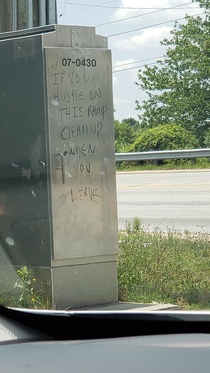 07-0430
IF YOU
HUSTLE ON
THIS RAMP
CLEAN UP
WHEN
YOU
LEAVE